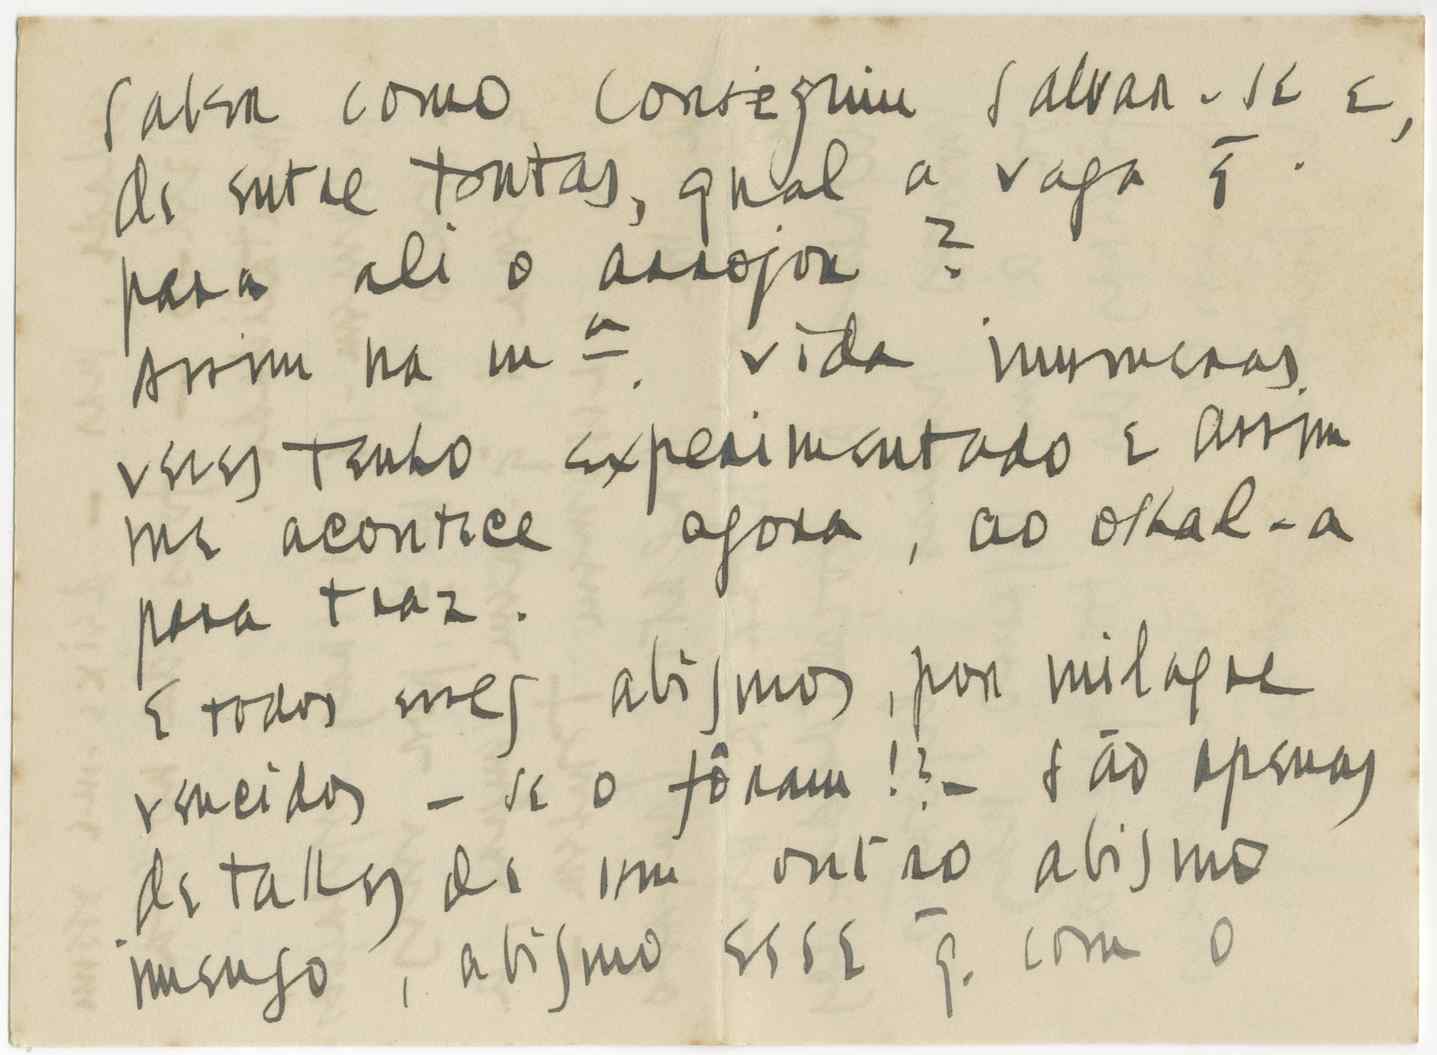 saber como conseguiu salvar-se e,
de entre tontas, qual a vaga q̄.
para ali o arrojou?
Assim na mª. vida inumeras
vezes tenho experimentado e assim
me acontece agora, ao olhal-a
para traz.
E todos esses abismos, por milagre
vencidos – se o fôram!? – são apenas
detalhes de um outro abismo
imenso, abismo esse q̄. com o